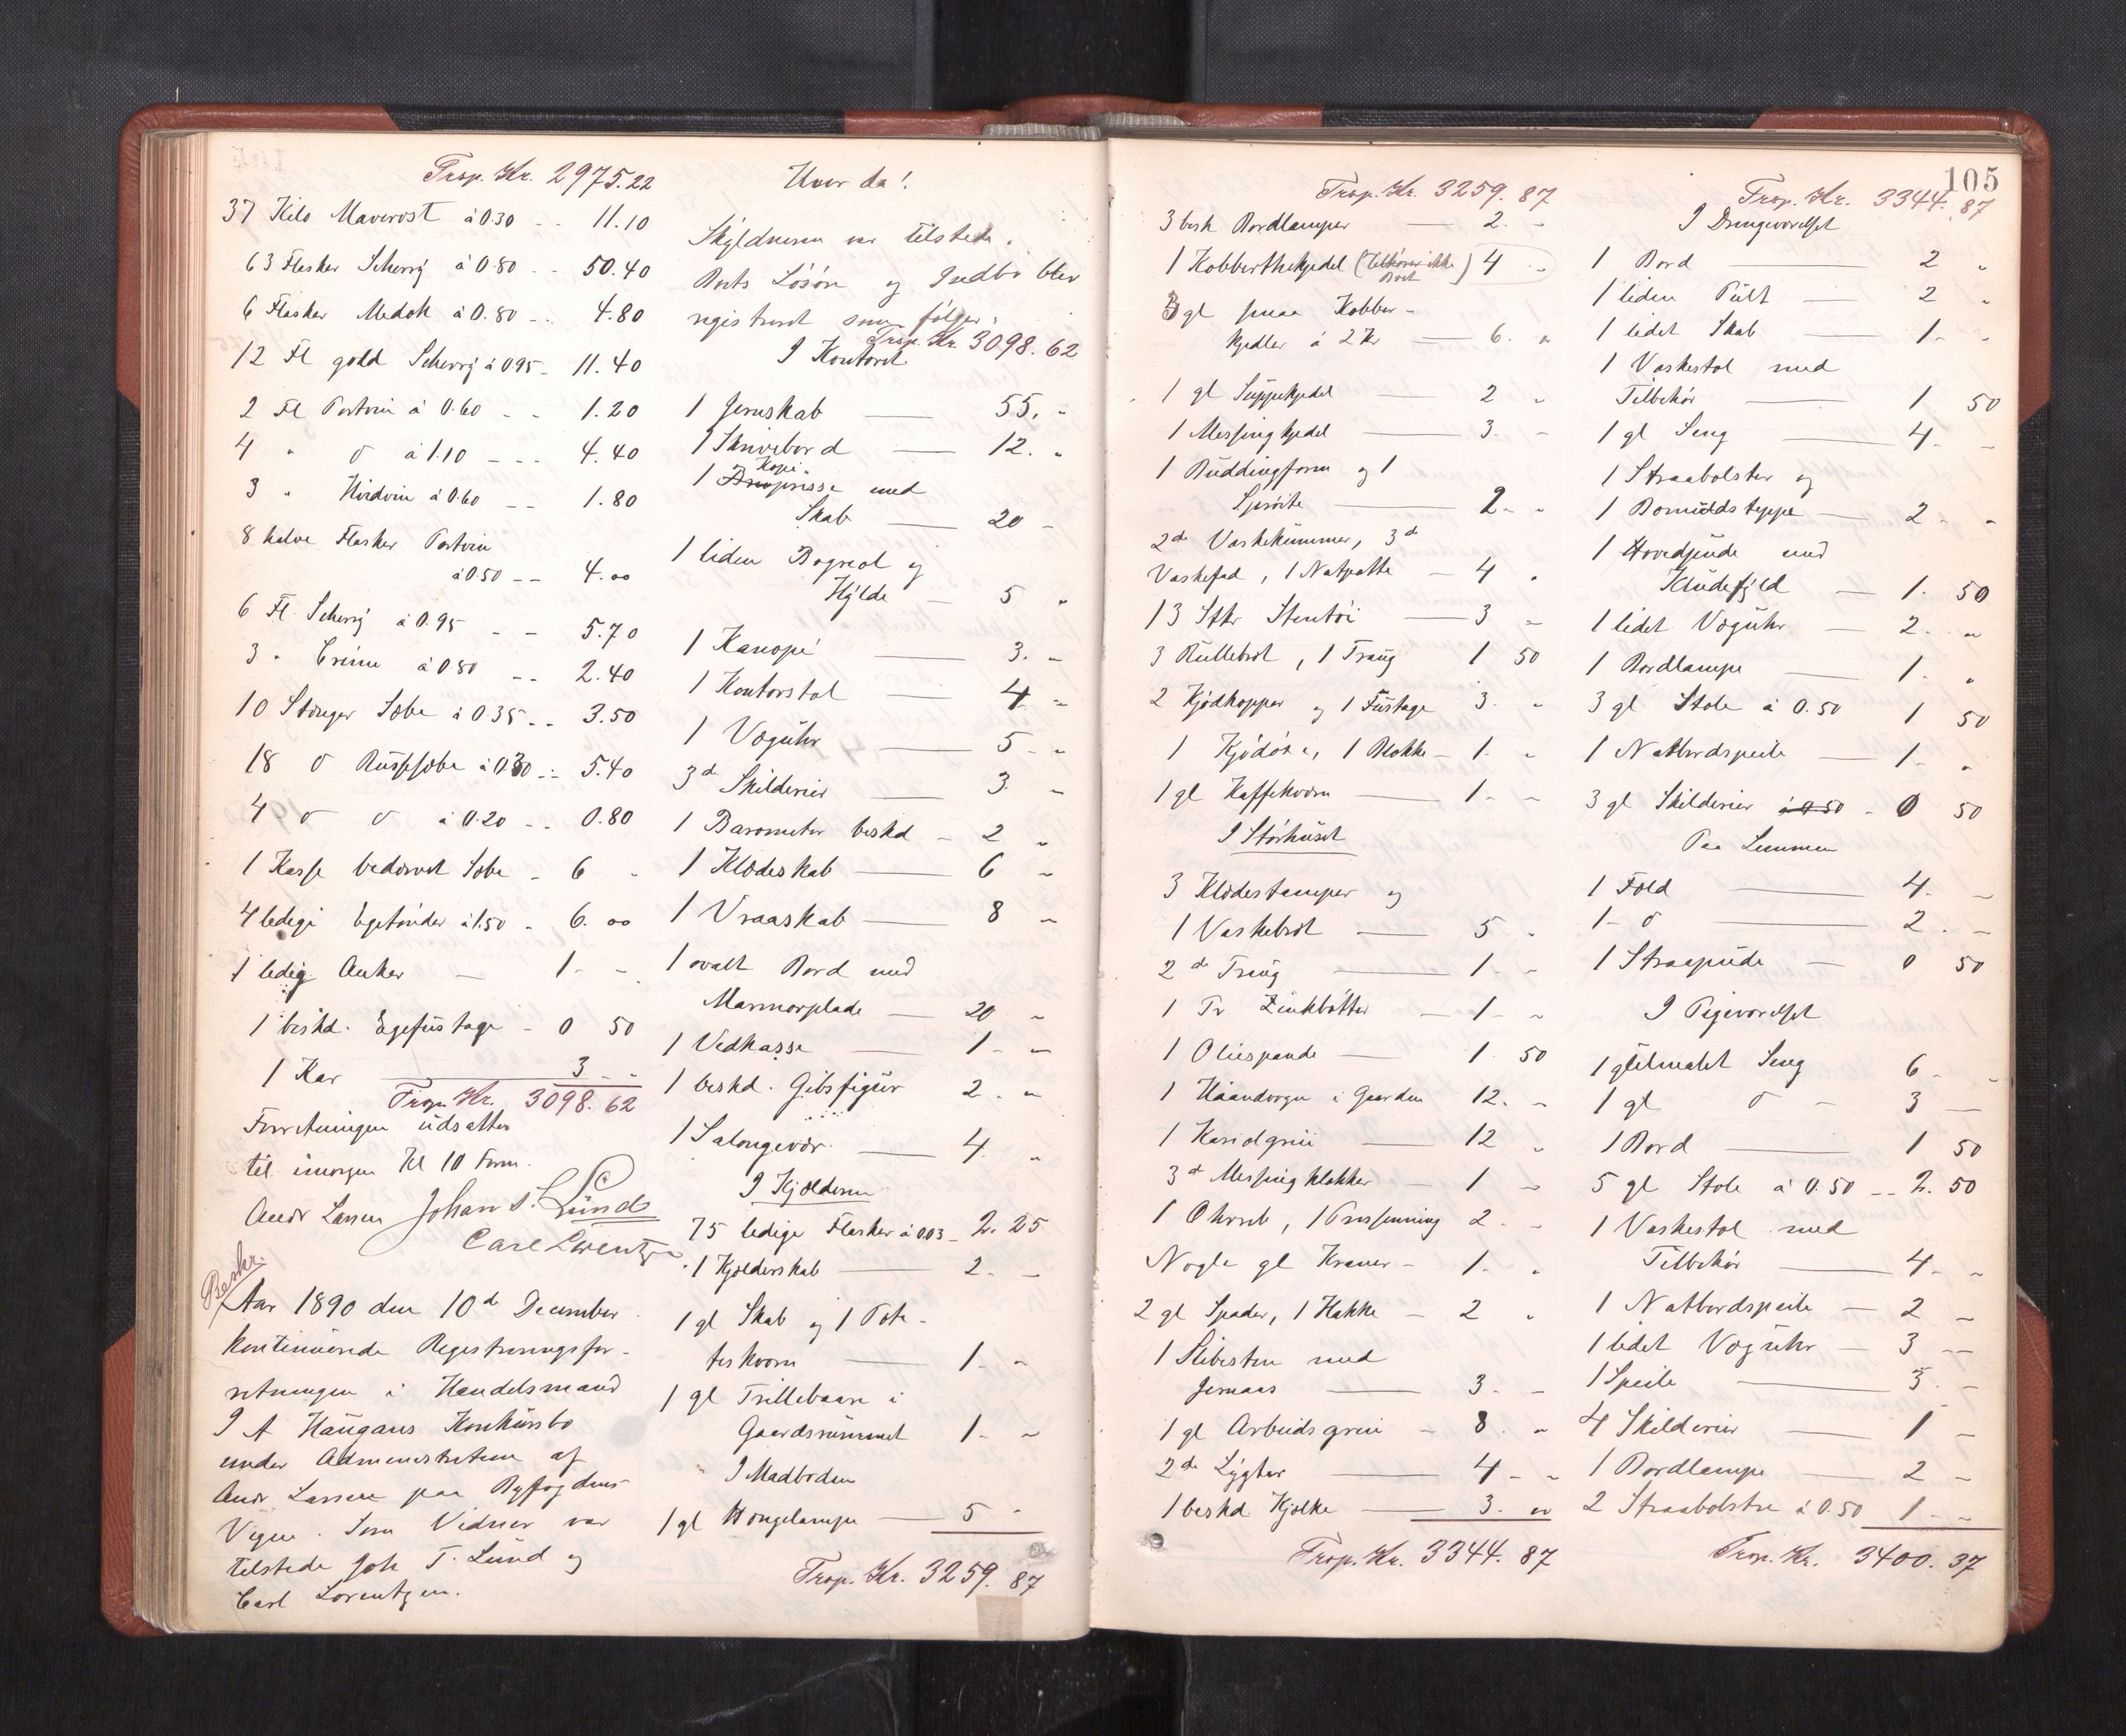 Trsp. Kr. 2975.22
37 Kilo Maverost à 0.30 - - 11.10
63 Flasker Scherrÿ à 0.80 - - 50.40
6 Flasker Medok à 0.80 - - 4.80
12 Fl gold Scherrÿ à 0.95 - 11.40
2 Fl Portvin à 0.60 - - 1.20
4 " d à 1.10 - - - 4.40
3 " Hvidvin à 0.60 - - 1.80
8 halve Flasker Portvin
à 0.50 - - 4.00
6 Fl. Scherrÿ à 0.95 - - 5.70
3 " à 0.80 - - 2.40
10 Stænger Sæbe à 0.35 - - 3.50
18 d Russesæbe à 0.30 - - 5.40
4 d d à 0.20 - - 0.80
1 Kasse bedærvet Sæbe - 6 "
4 ledige Egetønder à 1.50 - 6.00
1 ledig Anker — 1 - -
1 beskd. Egefustage - 0 50
1 Kar — 3 - "
Trsp. Kr. 3098.62
Forretningen udsattes
til imorgen Kl 10 Form.
Andr Larsen Johan T. Lund
Carl Lorentzen
Beskr.
Aar 1890 den 10de December
kontinuerede Registreringsfor-
retningen i Handelsmand
I A Haugans Konkursbo
under Administration af
Andr Larsen paa Byfogdens
Vegne. Som Vidner var
tilstede Joh T. Lund og
Carl Lorentzen.
Hvor da!
Skyldneren var tilstede.
Boets Løsøre og Indbo blev
registreret som følger:
Trsp. Kr. 3098.62
I Kontoret
1 Jernskab — 55. "
1 Skrivebord — 12. "
1 Kopipresse med
Skab — 20 -
1 liden Bogreol og
Hylde — 5 "
1 Kanope — 3. -
1 Kontorstol — 4 -
1 Væguhr — 5 - "
3de Skilderier — 3 -
1 Barometer beskd - 2 "
1 Klædeskab — 6 -
1 Vraaskab — 8 -
1 ovalt Bord med
Marmorplade — 20 -
1 Vedkasse — 1 - -
1 beskd. Gibsfigur 2 . -
1 Salongevær — 4. "
I Kjælderen
75 ledige Flasker à 0.03 - 2. 25
1 Kjælderskab — 2. -
1 gl Skab og 1 Pote-
teskvern — 1. -
1 gl Trillebaare i
Gaardsrummet 1. -
I Madboden
1 gl Hængelampe — 5 -
Trsp. Kr. 3259. 87
105
Trsp. Kr. 3259. 87
3 besk Bordlamper — 2. -
1 Kobberthekjedel (tilhører ikke Boet) 4 -
3 gl smaa Kobber-
kjedler à 2 Kr — 6. "
1 gl Suppekjedel — 2 -
1 Messingkjedel — 3. -
1 Puddingform og 1
— 2. -
2de Vaskekummer, 3de
Vaskefad, 1 Natpotte — 4 "
13 Stkr Stentøi — 3 -
3 Rullebræt, 1 Traug 1 50
2 Kjødkopper og 1 Fustage 3. "
1 Kjødøxe, 1 Blokke - 1. "
1 gl Kaffekværn — 1. -
I Størhuset
3 Klædestamper og
1 Vaskebræt — 5 -
2de Traug — 1 -
1 Pr Zinkbøtter — 1 - -
1 Oliespande — 1. 50
1 Haandvogn i Gaarden 12. -
1 Kariolgreie — 12 "
3de Messingklokker - 1 -
1 , 1 Presenning 2. -
Nogle gl Kraner - 1. "
2 gl Spader, 1 Hakke - 2 "
1 Slibesten med
Jernaas — 3 - -
1 gl Arbeidsgreie - 8 -
2de Lygter — 4 - -
1 beskd Kjælke — 3. "
Trsp. Kr. 3344. 87
Trsp. Kr. 3344. 87
I Drengeværelset
1 Bord — 2 "
1 liden Pult — 2 "
1 lidet Skab — 1 - -
1 Vaskestol med
Tilbehør — 1 50
1 gl Seng — 4 - -
1 Straabolster og
1 Bomuldsteppe — 2 - "
1 Hovedpude med
— 1. 50
1 lidet Væguhr — 2. "
1 Bordlampe — 1. "
3 gl Stole à 0.50 1 50
1 Natbordspeile — 1 - "
3 gl Skilderier à 0.50 - 0 50
Paa Lemmen
1 Fold — 4. -
1 - d — 2 . -
1 Straapude — 0 50
I Pigeværelset
1 gulmalet Seng 6 - -
1 gl d — 3 -
1 Bord — 1 50
5 gl Stole à 0.50 - - 2. 50
1 Vaskestol med
Tilbehør — 4 - -
1 Natbordspeile — 2 -
1 lidet Væguhr — 3 -
1 Speile — 3 -
4 Skilderier — 1 -
1 Bordlampe — 2 -
2 Straabolstre à 0.50 1 - -
Trsp. Kr. 3400. 37